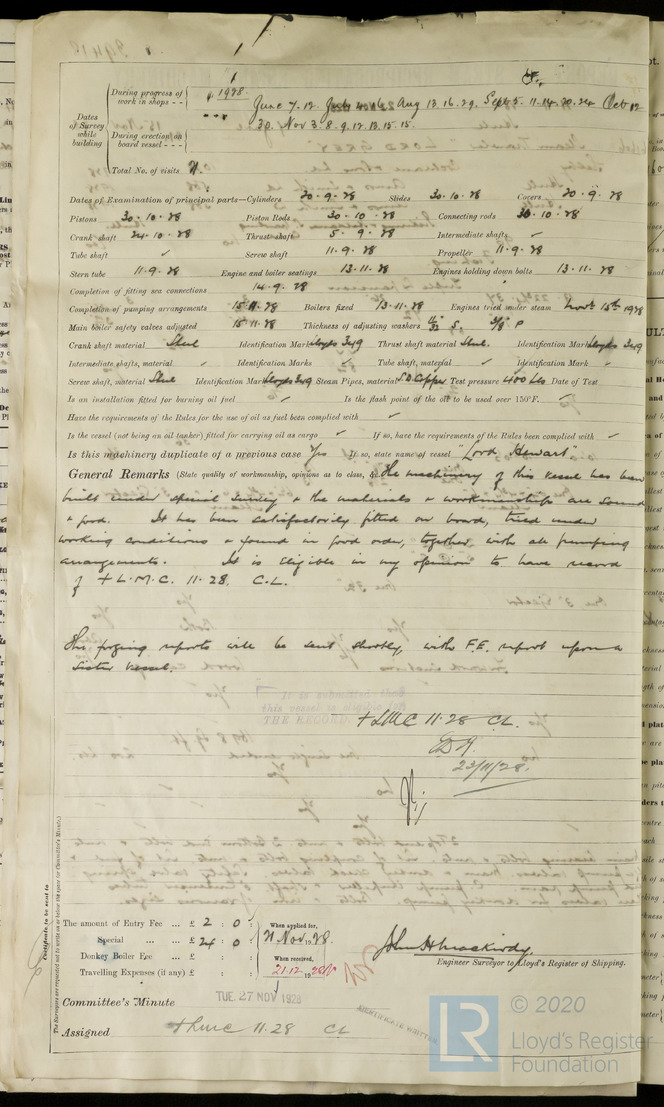 Dates of Survey while building
During progress of work in shops - -
1928
June 7.12. Aug 13.16.29. Sept 5. 11.14.20.24 Oct 12
30. Nov 3.8.9.12.13.15.15.
During erection on board vessel - - -
Total No. of visits
Dates of Examination of principal parts—Cylinders 20.9.28 Slides 30.10.28 Covers 20.9.28
Pistons 30.10.28 Piston Rods 30.10.28 Connecting rods 30.10.28
Crank shaft 24.10.28 Thrust shaft 5.9.28 Intermediate shafts ✓
Tube shaft ✓ Screw shaft 11.9.28 Propeller 11.9.28
Stern tube 11.9.28 Engine and boiler seatings 13.11.28 Engines holding down bolts 13.11.28
Completion of fitting sea connections 14.9.28
Completion of pumping arrangements 15.11.28 Boilers fixed 13.11.28 Engines tried under steam Novr 15th 1928
Main boiler safety valves adjusted 15.11.28 Thickness of adjusting washers 11/32 S. 3/8 P
Crank shaft material Steel Identification Mark Lloyds 349 Thrust shaft material Steel. Identification Mark Lloyds 349
Intermediate shafts, material ✓ Identification Marks ✓ Tube shaft, material ✓ Identification Mark ✓
Screw shaft, material Steel Identification Mark Lloyds 349 Steam Pipes, material S.D. Copper Test pressure 400 Lbs Date of Test
Is an installation fitted for burning oil fuel ✓ Is the flash point of the oil to be used over 150°F. ✓
Have the requirements of the Rules for the use of oil as fuel been complied with ✓
Is the vessel (not being an oil tanker) fitted for carrying oil as cargo ✓ If so, have the requirements of the Rules been complied with ✓
Is this machinery duplicate of a previous case Yes If so, state name of vessel "Lord Hewart".
General Remarks (State quality of workmanship, opinions as to class, &c. The machinery of this vessel has been
built under special survey & the materials & workmanship are sound
& good. It has been satisfactorily fitted on board, tried under
working conditions & found in good order, together with all pumping
arrangements. It is eligible in my opinion to have record
of + L.M.C. 11.28. C.L.
The forging reports will be sent shortly with F.E. report upon a
Sister vessel.
It is submitted that
this vessel is eligible for
THE RECORD
+ LMC 11.28 CL.
23/11/28.
The amount of Entry Fee ... £ 2 : 0 :
Special ... ... £ 24 : 0 :
Donkey Boiler Fee ... £ : :
Travelling Expenses (if any) £ : :
When applied for,
21 Nov. 1928.
When received,
21.12.1928
John H Mackirdy
Engineer Surveyor to Lloyd's Register of Shipping.
Committee's Minute TUE 27 NOV 1928
Assigned + LMC 11.28 CL
CERTIFICATE WRITTEN
Certificate to be sent to
The Surveyors are requested not to write on or below the space for Committee's Minute.
© 2020
LR
Lloyd's Register
Foundation